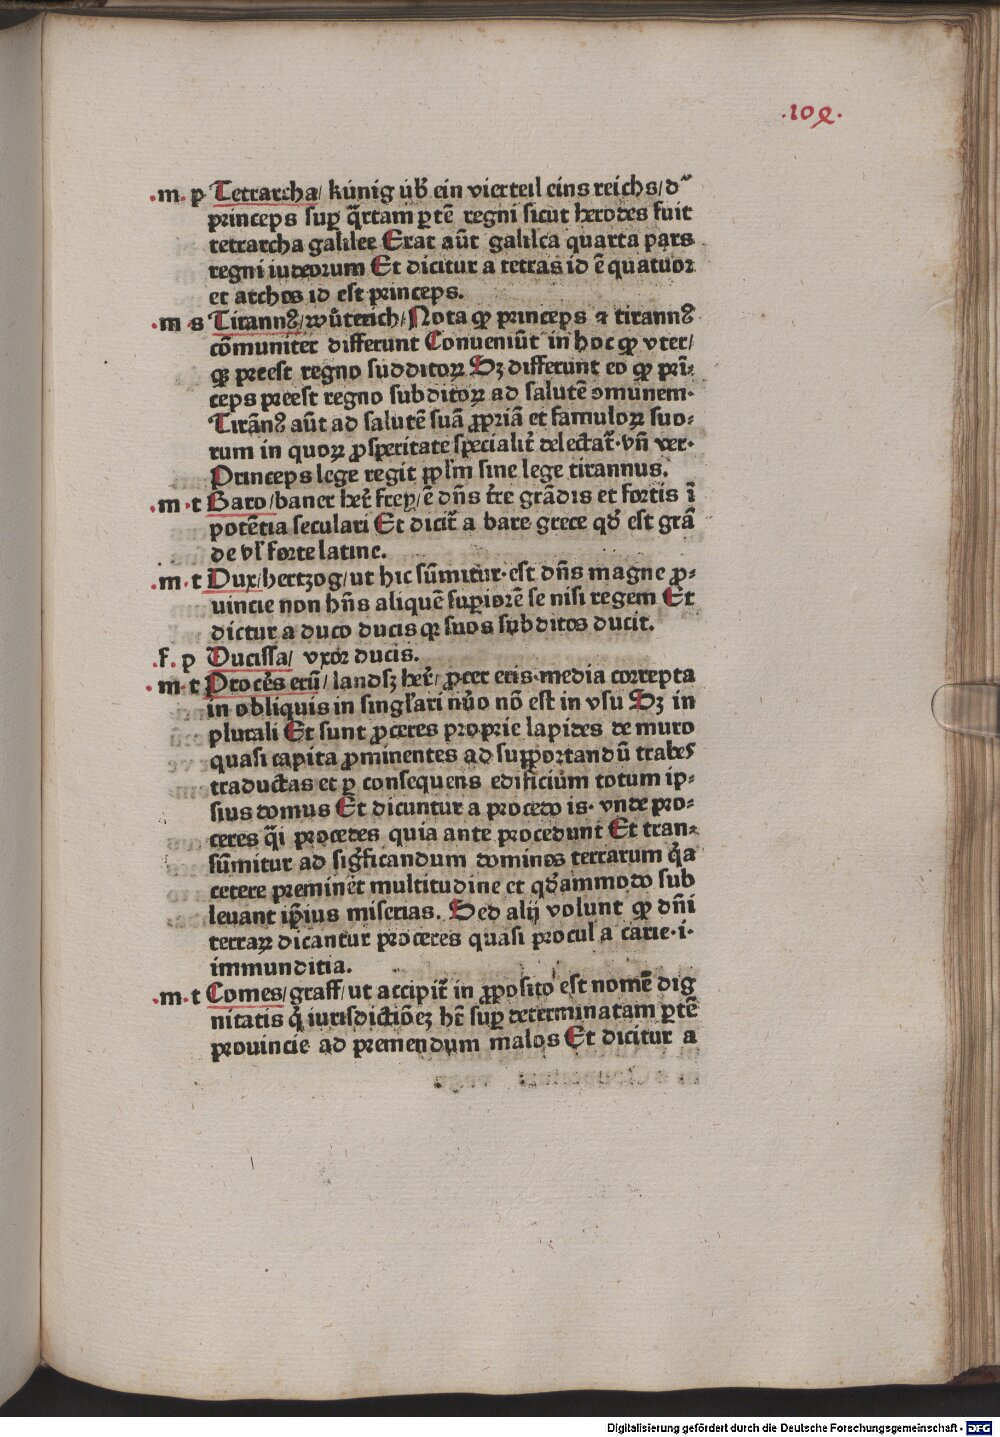 .109.
.m. p Tetrarcha/ kúnig úb̄ ein vierteil eins reichs/ d᷑
princeps suꝑ q̄rtam ꝑtē regni sicut herodes fuit
tetrarcha galilee Erat aūt galilea quarta pars
regni iudeorum Et dicitur a tetras id ē quatuor
et archos id est princeps.
.m s Tirannꝰ/ wůterich/ Nota ꝙ princeps ⁊ tirannꝰ
cōmuniter differunt Conueniūt in hoc ꝙ vter/
qꝫ preest regno subditoꝝ Sꝫ differunt eo ꝙ prī⸗
ceps preest regno subditoꝝ ad salutē ꝯmunem.
Tirānꝰ aūt ad salutē suā ꝓpriā et famuloꝝ suo⸗
rum in quoꝝ ꝓsperitate specialit᷑ delectat᷑. vn̄ ver.
Princeps lege regit pp̄l'm sine lege tirannus.
.m. t Baro/ baner her᷑ frey/ ē dn̄s t᷑re grādis et fortis ī
potētia seculari Et dicit᷑ a bare grece qd̄ est grā
de vl' forte latine.
.m. t Dux/ hertzog/ ut hic sūmitur. est dn̄s magne ꝓ⸗
uincie non hn̄s aliquē superiorē se nisi regem Et
dictur a duco ducis qꝛ suos subditos ducit.
.f. p Ducissa/ vxor ducis.
.m. t Procēs erū/ landsꝫ her᷑/ ꝓcer eris media correpta
in obliquis in singl'ari nūo nō est in vsu Sꝫ in
plurali Et sunt ꝓceres proprie lapides de muro
quasi capita ꝓminentes ad supportandū trabes
traductas et ꝑ consequens edificium totum ip⸗
sius domus Et dicuntur a procedo is. vnde pro⸗
ceres q̄i procedes quia ante procedunt Et tran⸗
sūmitur ad sig̃ficandum dominos terrarum q̓a
cetere preminēt multitudine et qd̄ammodo sub
leuant ip̄ius miserias. Sed alij volunt ꝙ dn̄i
terraꝝ dicantur proceres quasi procul a carie .i.
immunditia.
.m. t Comes/ graff/ ut accipit᷑ in ꝓposito est nomē dig
nitatis q̓ iurisdictiōeꝫ hꝫ suꝑ determinatam ꝑtē
prouincie ad premendum malos Et dicitur a
Digitalisierung gefördert durch die Deutsche Forschungsgemeinschaft - DFG